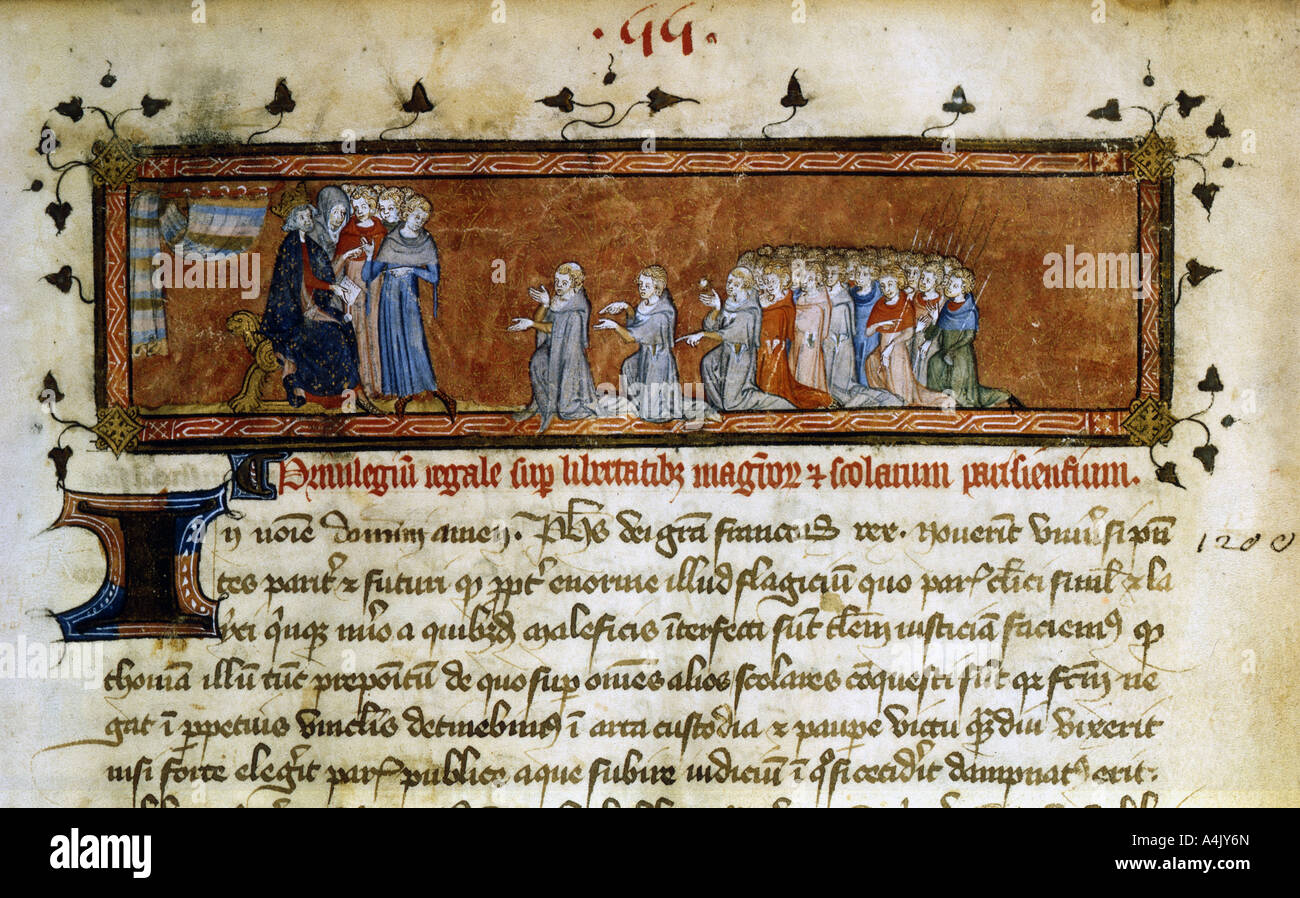 ·qq·
Privilegiū regale sup libertatibz magr̄oꝝ ⁊ scolarum parisiensium.
In noīe domini amen. Ph̄s dei gr̄a francoꝝ rex. Noverint univ̓si pn̄
1200
tes parit̓ ⁊ futuri qͥ ppt̓ enorme illud flagiciū quo par̓ cl̓ici simil̓ ⁊ la
yci qͥnqꝫ nr̄o a quibꝰdā maleficis īterfecti sūt tl̓em iusticiā faciemꝰ qͥ
thomā illū tūc prepoītū de quo sup om̄es alios scolares cōquesti sūt qꝛ fcm̄ ne
gat ī ppetuis vinclīs detinebimꝰ ī arta custodia ⁊ paupe victu qͣdiu vixerit
nisi forte eleg̓it par̓ publice aque subire iudiciū ī qͦ si cecid̓it dampnatꝰ erit.
alamy
a
alamy
Image ID: A4JY6N
www.alamy.com